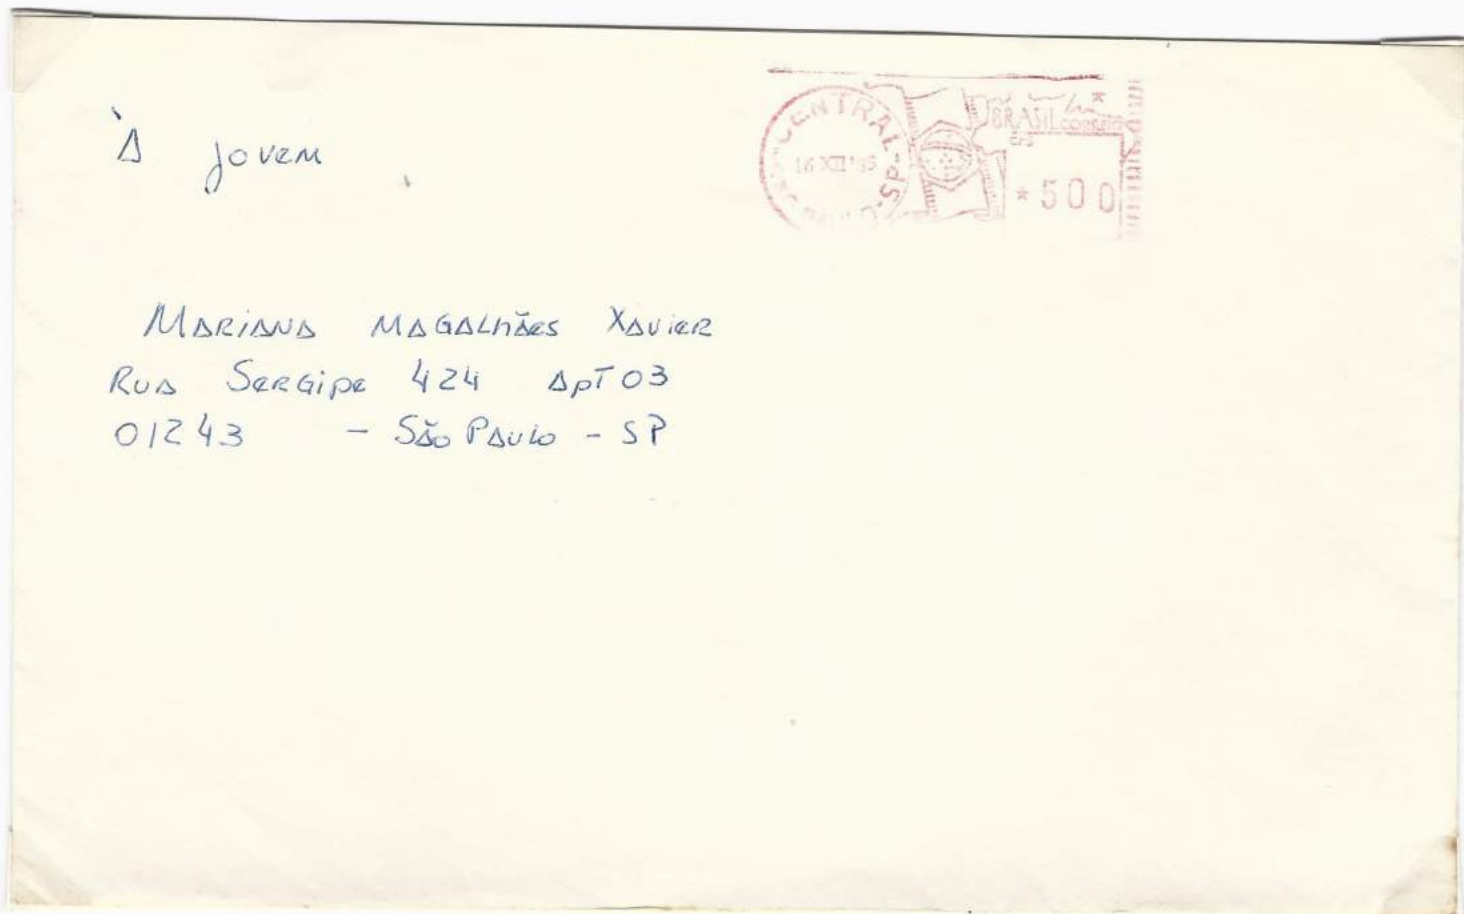 À jovem
CENTRAL
SP
PAULO
BRASIL correio
*500
Mariana Magalhães Xavier
Rua Sergipe 424 Apt 03
01243 - São Paulo - SP